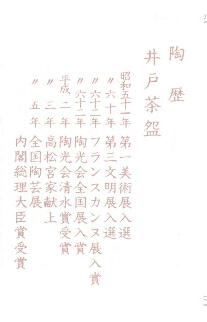 陶歴
井戸茶盌
昭和五十一年 第一美術展入選
〃 六十年 第三文明展入選
〃 六十二年 フランスカンヌ展入賞
〃 六十二年 陶光会全国展入賞
平成二年 陶光会清水賞受賞
〃 三年 高松宮家献上
〃 五年 全国陶芸展
内閣総理大臣賞受賞